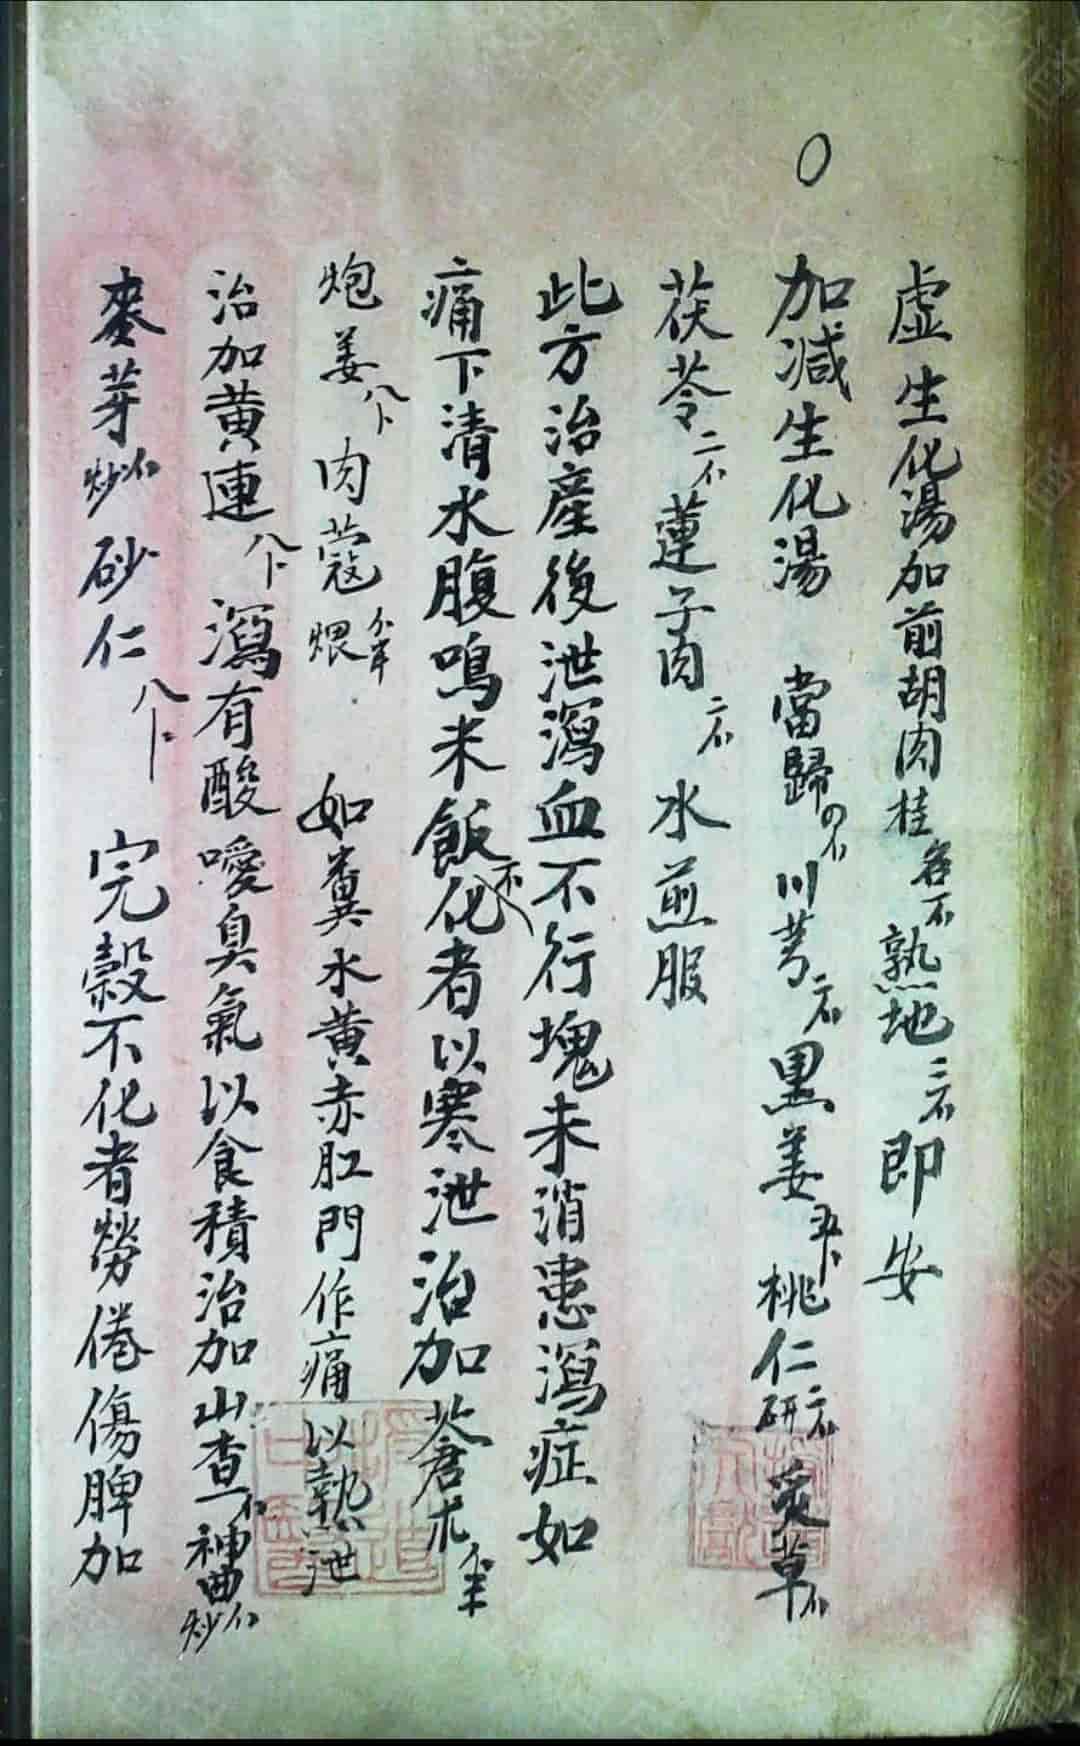 ○
虛生化湯加前胡肉桂各不熟地二不即安
加减生化湯 當歸 川芎二不黑姜 桃仁研二不炙草不
茯苓二不蓮子肉二不水煎服
此方治產後泄瀉血不行塊未消患瀉症如
痛下清水腹鳴米飯不化者以寒泄治加蒼朮
炮姜八卜肉蔻煨 如糞水黄赤肛門作痛以熱泄
治加黄連八卜瀉有酸噯臭氣以食積治加山查一不神曲炒不
麥芽炒不砂仁八卜完穀不化者勞倦傷脾加